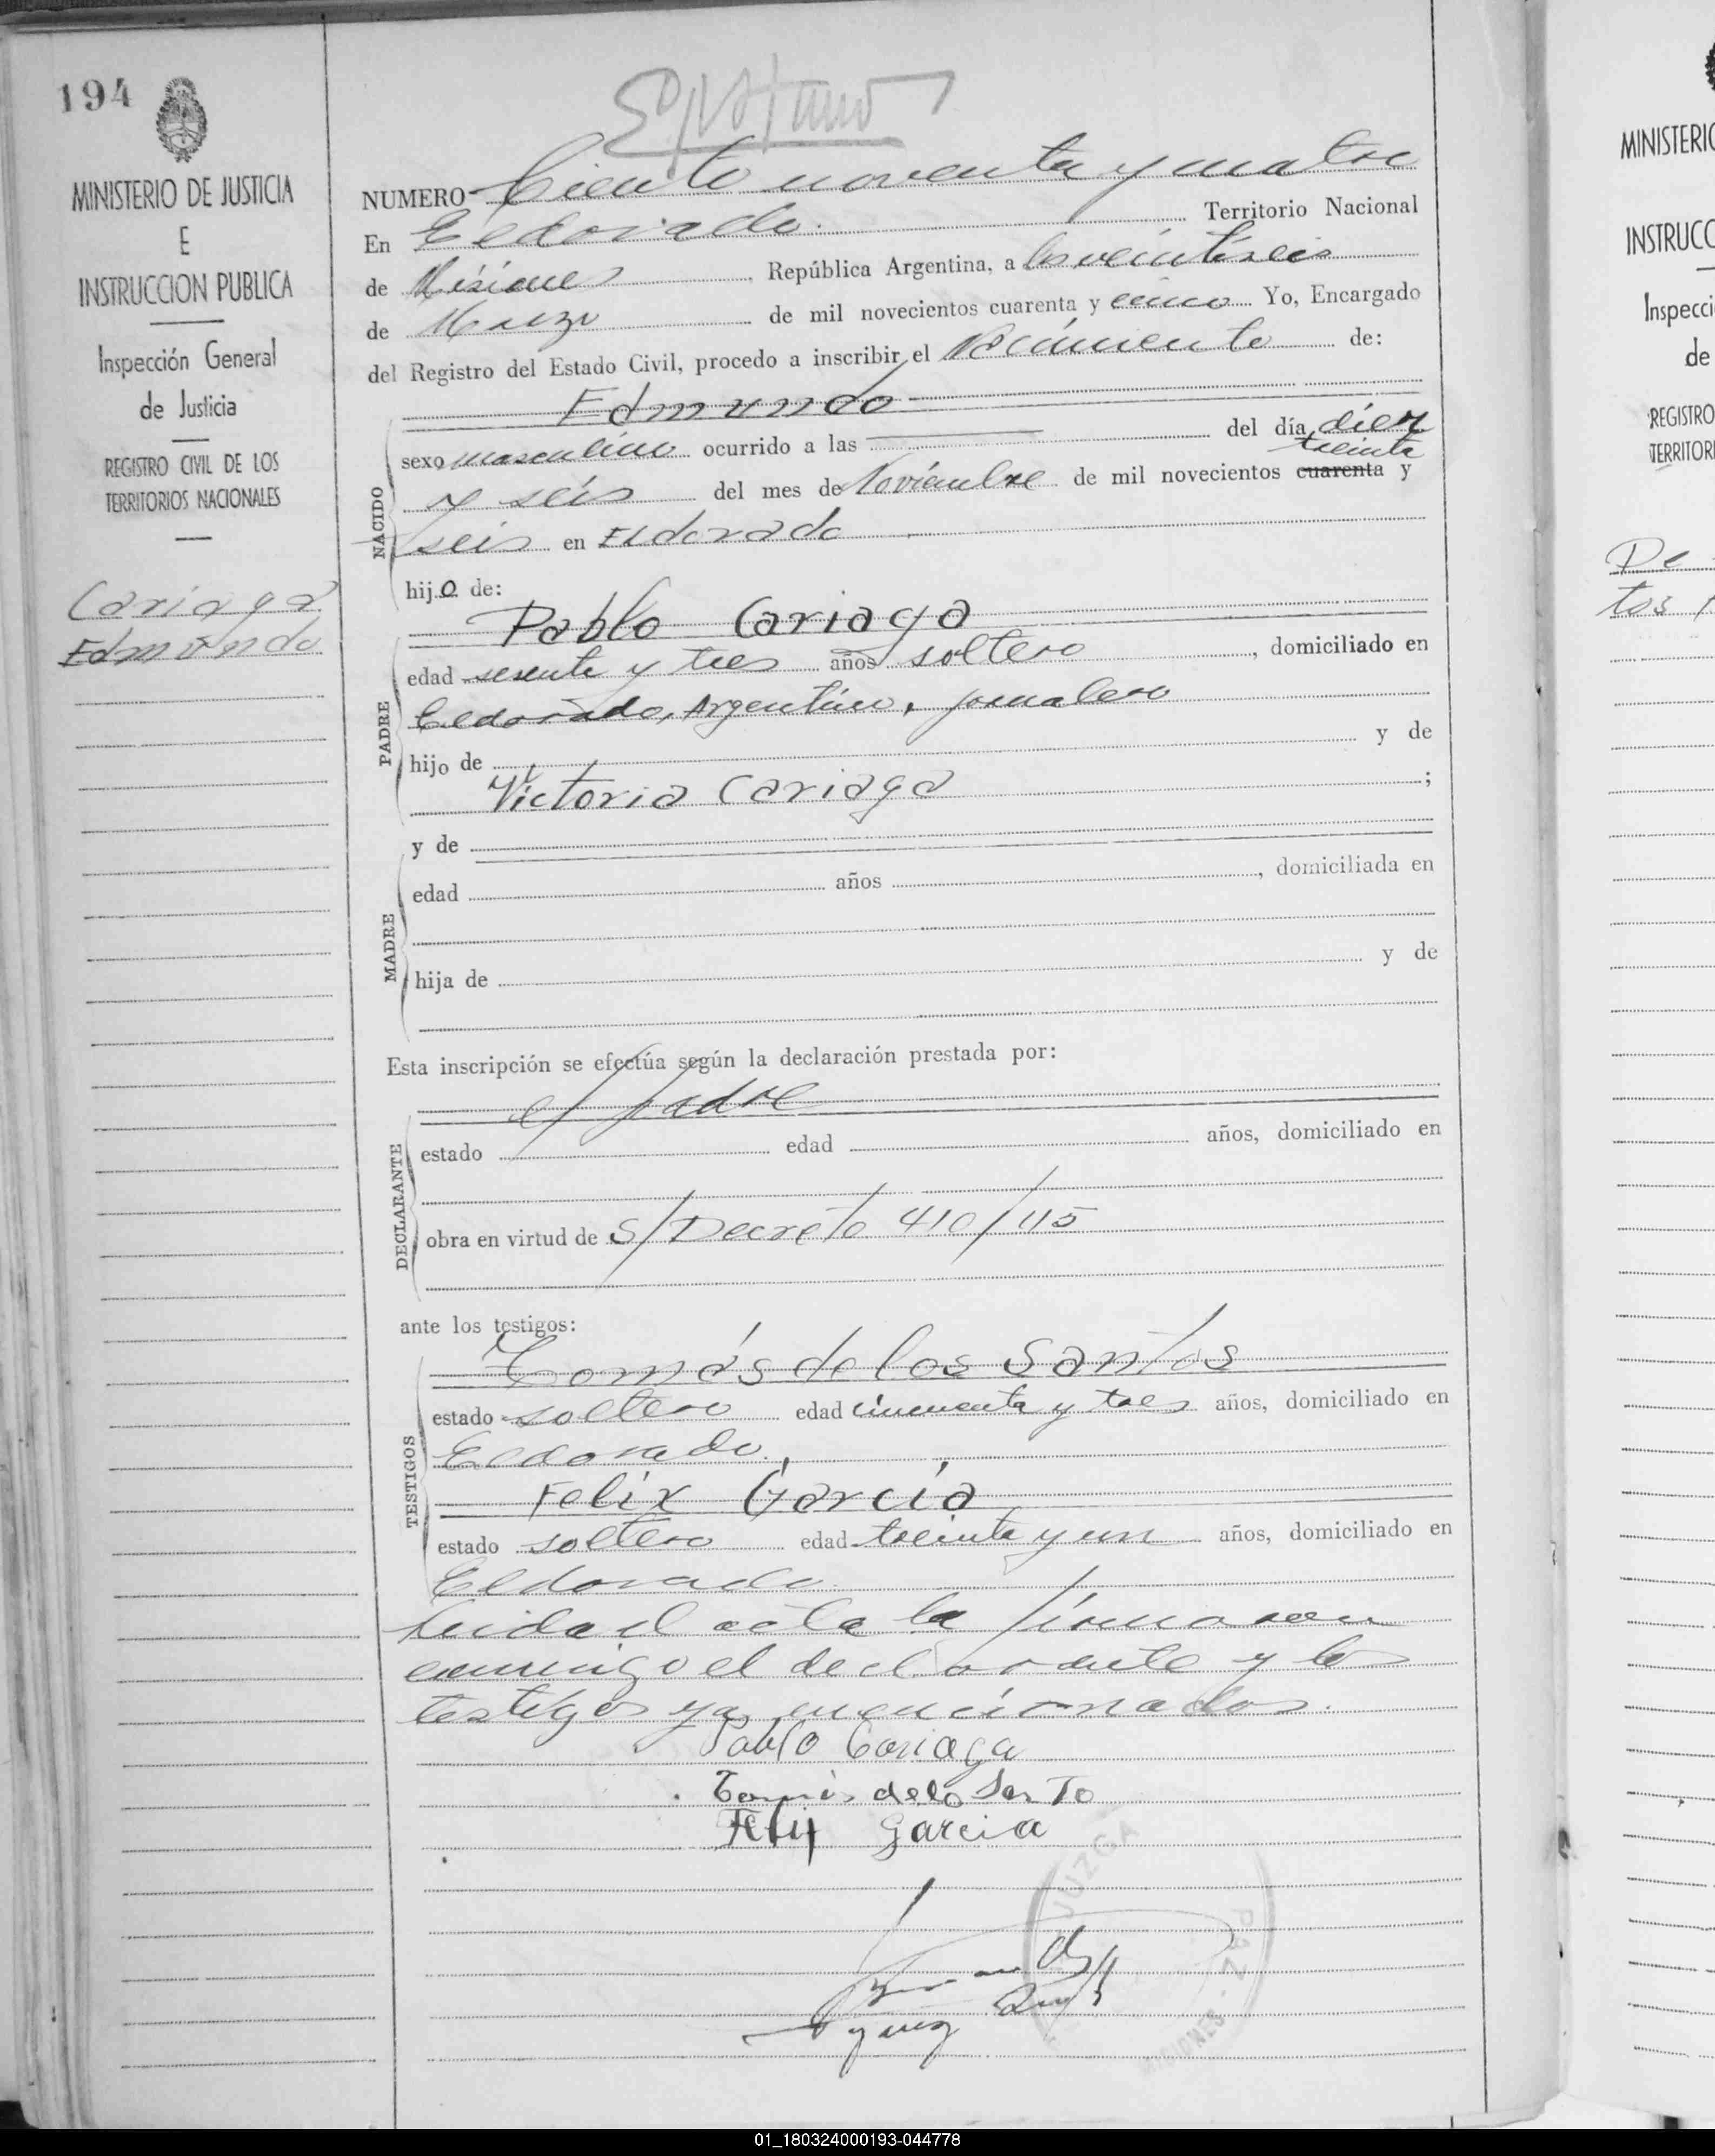 194
MINISTERIO DE JUSTICIA
E
INSTRUCCION PUBLICA
Inspección General
de Justicia
REGISTRO CIVIL DE LOS
TERRITORIOS NACIONALES
Cariaga
Edmundo
NUMERO Ciento noventa y cuatro
En Eldorado. Territorio Nacional
de Misiones, República Argentina, a los veintiseis
de Marzo de mil novecientos cuarenta y cinco Yo, Encargado
del Registro del Estado Civil, procedo a inscribir el Nacimiento de:
NACIDO
Edmundo
sexo masculino ocurrido a las del día diez
treinta
y seis del mes de Noviembre de mil novecientos cuarenta y
seis en Eldorado
hijo de:
PADRE
Pablo Cariaga
edad sesenta y tres años soltero, domiciliado en
Eldorado, Argentino, jornalero
hijo de y de
Victoria Cariaga;
MADRE
y de
edad años, domiciliada en
hija de y de
Esta inscripción se efectúa según la declaración prestada por:
DECLARANTE
el padre
estado edad años, domiciliado en
obra en virtud de S/Decreto 410/45
ante los testigos:
TESTIGOS
Tomás de los Santos
estado soltero edad cincuenta y tres años, domiciliado en
Eldorado,
Felix García
estado soltero edad treinta y un años, domiciliado en
Eldorado.
Leida el acta la firmaron
conmigo el declarante y los
testigos ya mencionados.
Pablo Cariaga
Tomás delo Santo
Felix Garcia
JUZGA
PAZ
MISIONES
MINISTERIO
INSTRUCC
Inspecci
de
REGISTRO
TERRITORI
De
tos
01_180324000193-044778